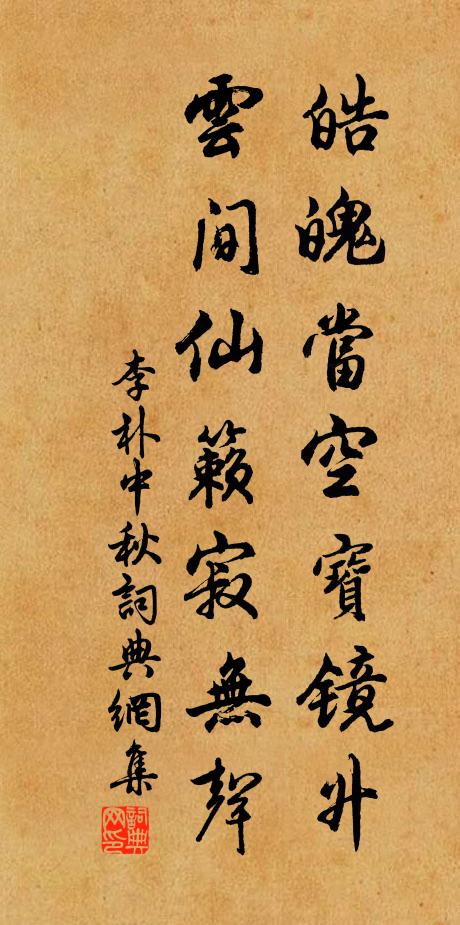 皓魄當空寶镜升
雲間仙籟寂無聲
李朴中秋詞典網集
詞典网印